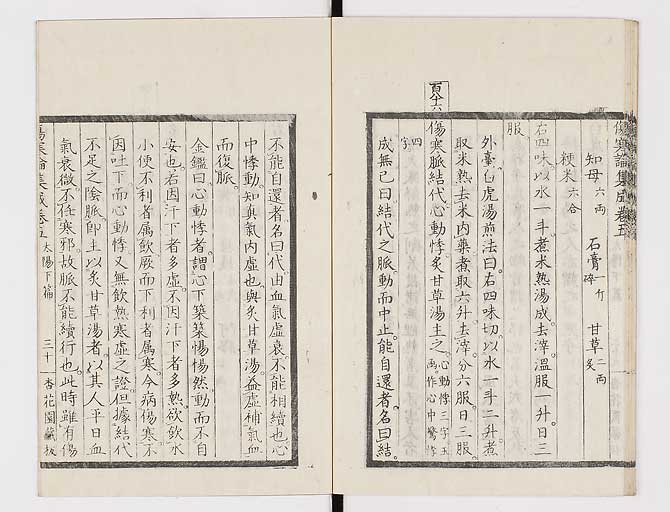 傷寒論集成卷五
知母六兩　石膏一斤碎　甘草二兩炙
粳米六合
右四味以水一斗煮米熟湯成去滓溫服一升日三
服
外臺白虎湯煎法曰右四味切以水一斗二升煮
取米熟去米內藥煮取六升去滓分六服日三服
百十六
傷寒脈結代心動悸炙甘草湯主之心動悸三字玉函作心中驚悸
四字
成無已曰結代之脈動而中止能自還者名曰結
不能自還者名曰代由血氣虛衰不能相續也心
中悸動知真氣內虛也與炙甘草湯益虛補氣血
而復脈
金鑑曰心動悸者謂心下築築惕惕然動而不自
安也若因汗下者多虛不因汗下者多熱欲飲水
小便不利者屬飲厥而下利者屬寒今病傷寒不
因吐下而心動悸又無飲熱寒虛之證但據結代
不足之陰脈即主以炙甘草湯者以其人平日血
氣衰微不任寒邪故脈不能續行也此時雖有傷
傷寒論集成卷五　太陽下篇　三十　杏花園藏板